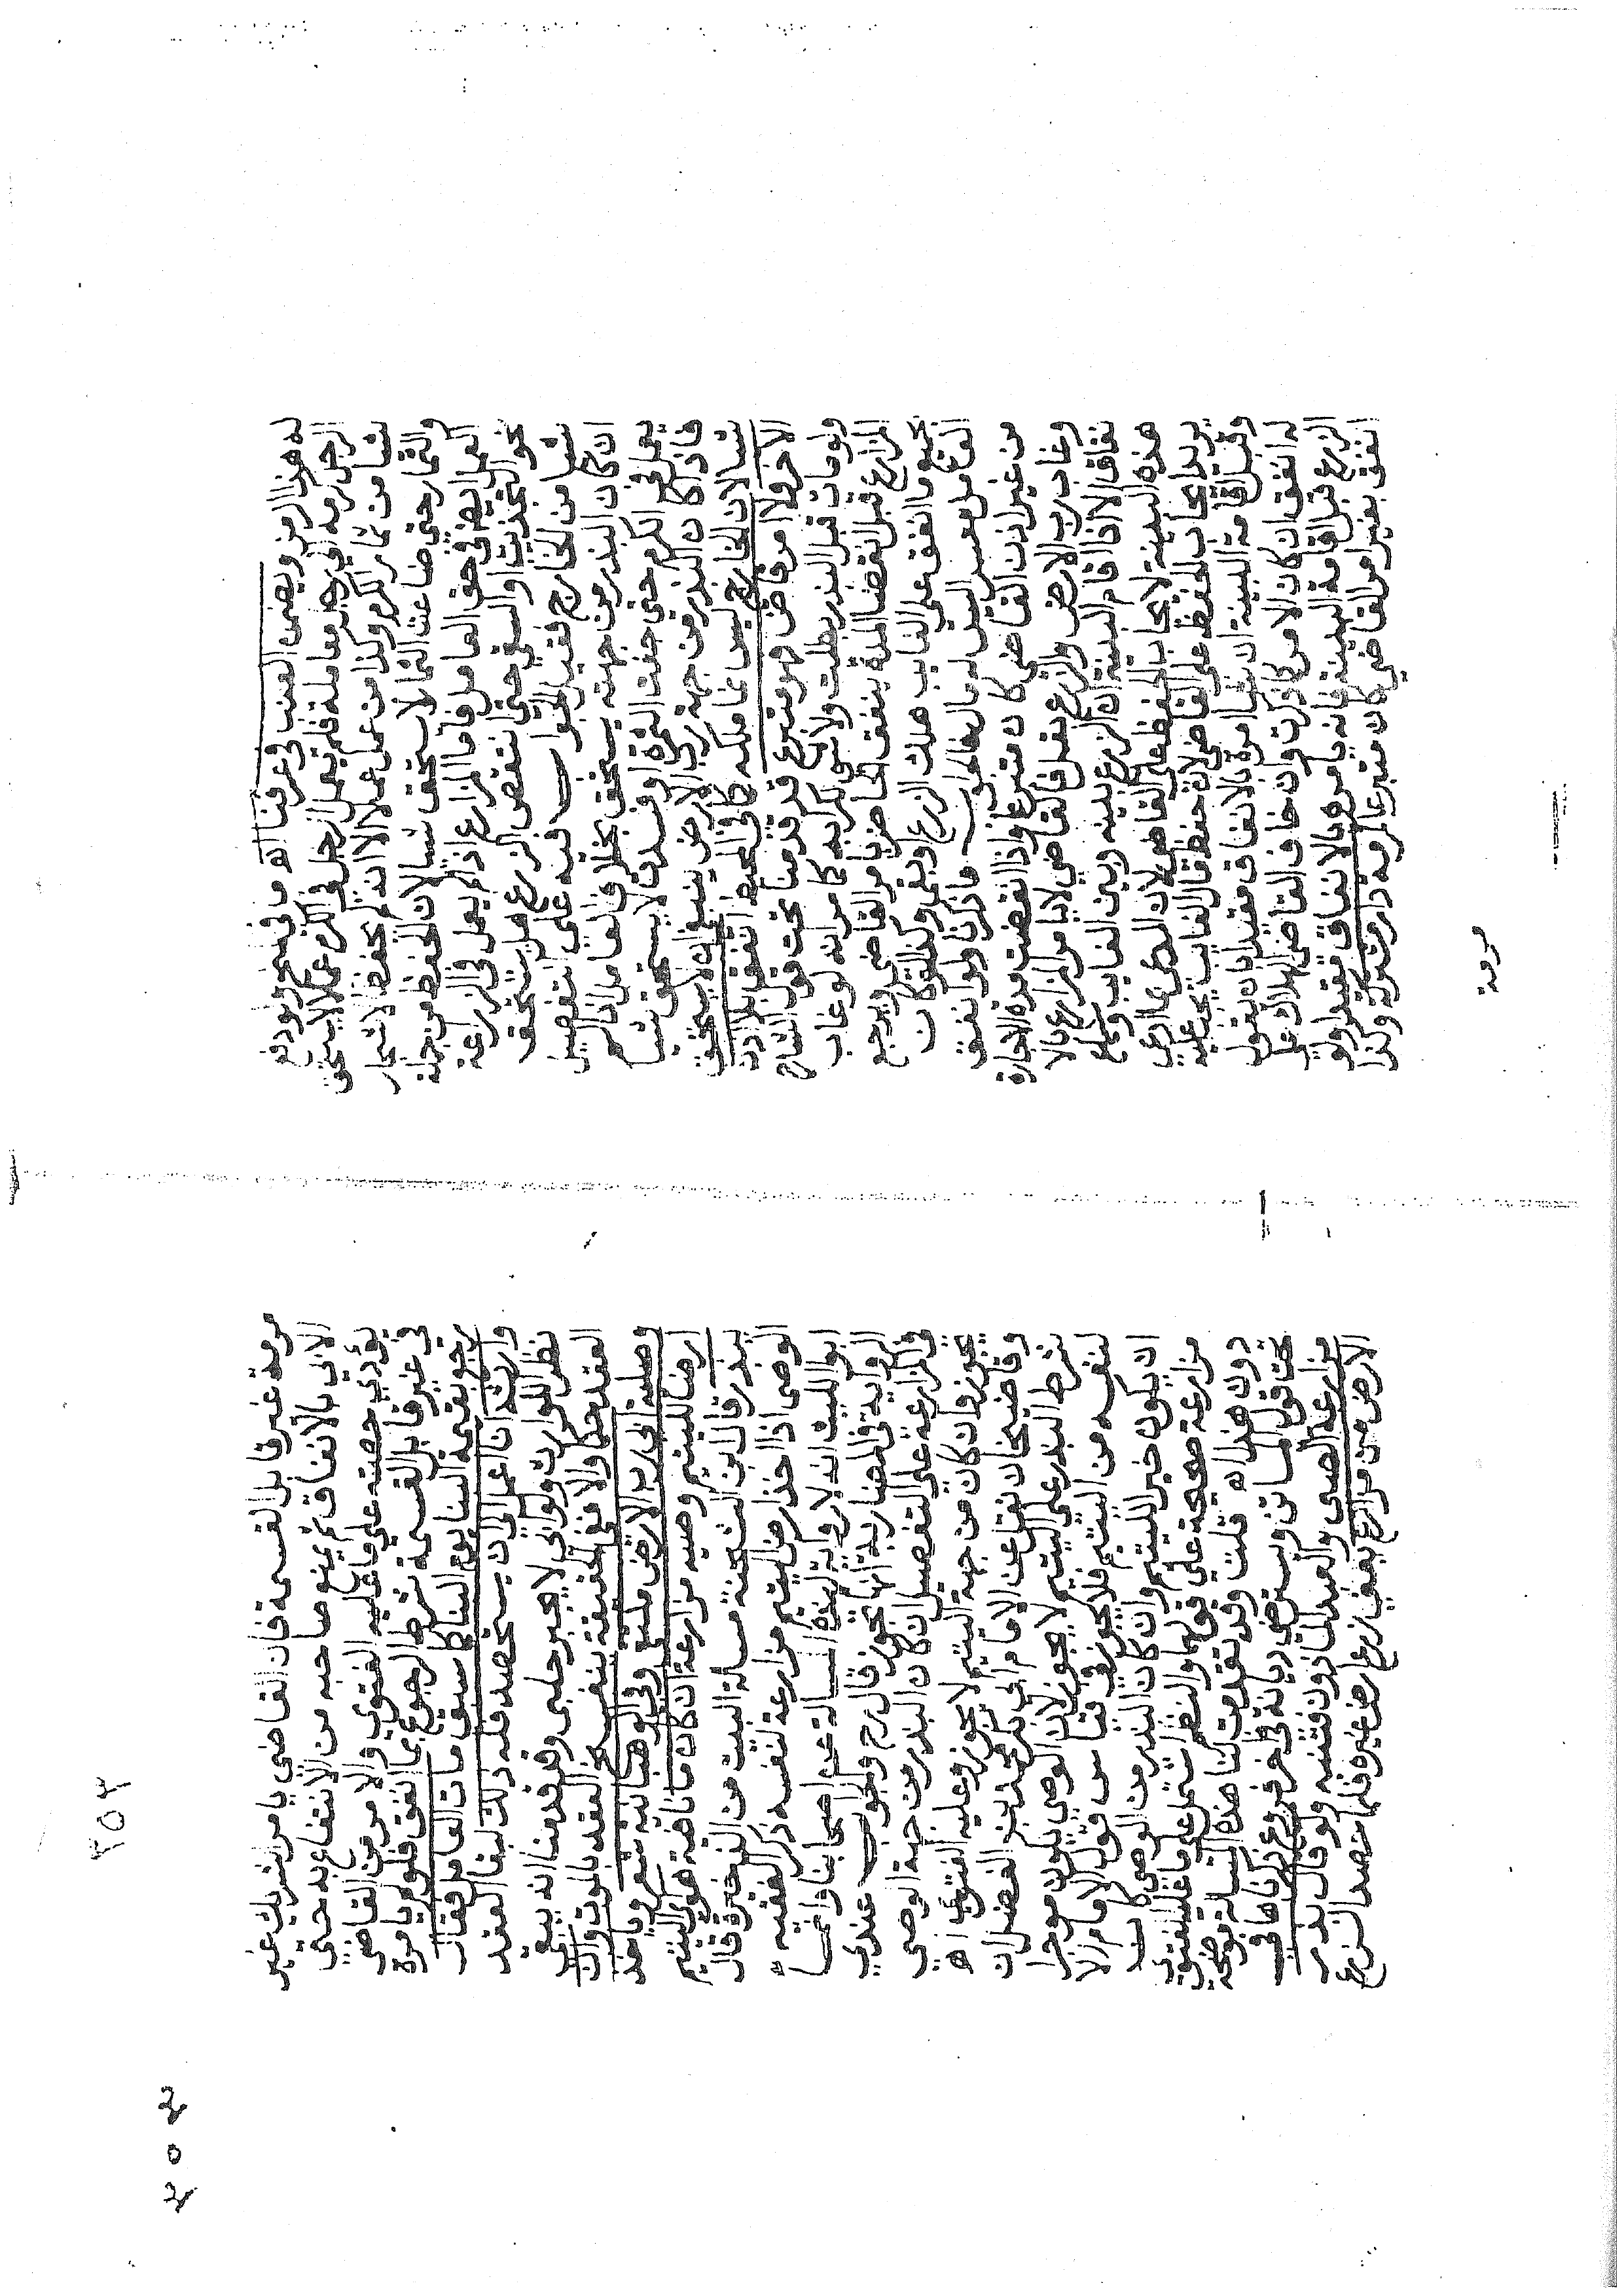 له هذا الزمن ويضمن العنب في عرفنا اه
الرجل كرمه الى رجل معاملة فلم يعمل الرجل في الكرم عملا لا يستحق
شيا من ثمار الكرم وكذا من عمل عملا الا انه لم يحفظ الاشجار
والثمار حتى ضاعت الثمار لا يستحق شيا لان الحفظ من جملة
العمل ايضا في حق العامل فاما المزارع اذا لم يعمل في الزراعة
نحو التجذيب والسقي حتى انتقص الزرع هل يستحق
شيا من الخارج فقيل الجواب فيه على التفصيل
ان كان البذر من جهته يستحق بخلاف العامل اذا لم
يعمل في الكرم حتى جفت الثمرة او فسدت لا يستحق شيا
فاذا كان البذر من جهة رب الارض ينبغي ان لا يستحق
شيا لان الخارج ليس نما ملكه كما في المحيط انفق بلا اذن
الاخر ولا امر قاض فهو متبرع قد قدمنا تحت قول الشارح
ولو مات قبل البذر بطلت ولا شي لكرابه كما مر انه لو غاب
المزارع قبل انقضا المدة ينفق الحاضر بامر القاضي ويرجع
بجميع ما انفق على الغايب هلك الزرع او بقي وكذا لو كان
العامل معسرا ليس له مال فالجواب ما ذكرنا ولو انفق
من غير اذن القاضي كان متبرعا واذا انقضت مدة الاجارة
وغاب رب الارض والزرع بقل فالقاضي لا يامر المزارع بالا
نفاق الا اذا اقام البينة ان الزرع بينه وبين الغايب وتسمع
هذه البينة لايجاب الحفظ على القاضي لان المدعي بما ادعى
يريد ايجاب الحفظ على القاضي لانه حفظ مال الغايب يجب عليه
وقبل اقامة البينة ان شا امره بالانفاق مقيدا بان يقول
له انفق ان كان الامر كما ذكرت وان خاف القاضي الهلاك على
الزرع قبل اقامة البينة فانه يامره بالانفاق مقيدا ولو
انفق بغير امر القاضي كان متبرعا كمرمة دار مشتركة وكذا
مرمة
مرمة غير قابل القسمة فان القاضي يامر الشريك غير
الابي بالانفاق ثم يمنع صاحبه من الانتفاع به حتى
يؤدي حصته على ما عليه الفتوى والامر من القاضي
في غير قابل القسمة شرط الرجوع بما انفق فلو لم يامره
رجع بقيمة البنا يوم البنا كما سبق مات العامل فقال
وارثه انا اعمل الى ان يستحصد فله ذلك لبقا العقد
نظرا للوارث ولو ابى لا يجبر حلبي وقد قدمنا انه يبقى
العقد حكما ولا ففي الحقيقة ينفسخ العقد بالموت وان
وصلية ابى رب الارض ملتقى وفي الوهبانية شعر وياخذ
ارضا لليتيم وصيه مزارعة ان كان ما ناضه هو اليتيم
يبذر قال ابن الشحنة مسالة البيت من الذخيرة قال
الوصي اذا اخذ ارض اليتيم مزارعة لنفسه ذكر الفقيه
ابو الليث انه لا رواية لهذه المسالة عن اصحابنا وانما
الرواية في المضاربة انها تجوز قال رح والجواب عندي
في المزارعة على التفصيل ان كان البذر من جهة الوصي
يجوز وان كان من جهة اليتيم لا يجوز وعليه الفتوى اه
وقاضيخان نقل عن الامام ابى بكر محمد بن الفضل ان
شرط البذر على اليتيم لا يجوز لان الوصي يكون موجرا
لنفسه من اليتيم فلا يجوز في قياس قول الامام الا
ان يكون خيرا لليتيم وان كان البذر من الوصي كانت
مزارعة صحيحة على قولهما والنظم اشتمل على ما عليه الفتوى
دون هذا اه قلت وقد تقدمت لنا هذه المسالة موضحة
تحت قول الماتن وبسترضي ديانة في اخر فروع ذكرناها في
مزارعة الصبي والعبد الماذون فتنبه ولو قال بذر
الارض من مزارع يعني زرع ارض غيره فلما حصد الزرع
٢٥٢
2 0 2